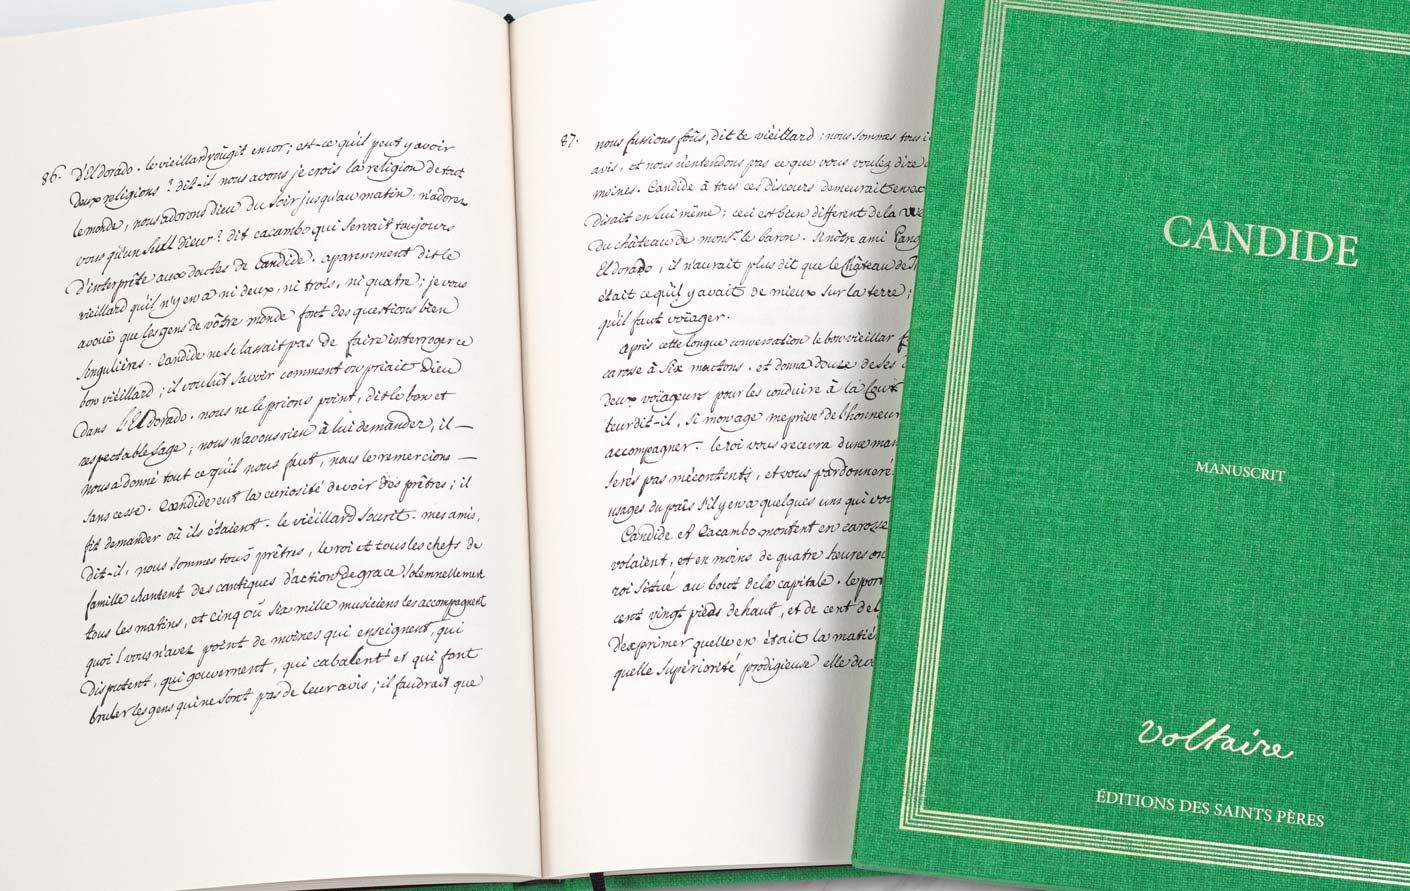 86. D'El dorado. le vieillard rougit encor; est-ce qu'il peut y avoir
deux religions? dit-il nous avons je crois la religion de tout
le monde, nous adorons dieu du soir jusqu'au matin. n'adorez
vous qu'un seul dieu? dit cacambo qui servait toujours
d'interprête aux doutes de candide. aparemment dit le
vieillard qu'il n'y en a ni deux, ni trois, ni quatre; je vous
avoüe que les gens de vôtre monde font des questions bien
singulières. Candide ne se lassait pas de faire interroger ce
bon vieillard; il voulut savoir comment on priait Dieu
dans l'El dorado. nous ne le prions point, dit le bon et
respectable sage; nous n'avons rien à lui demander, il —
nous a donné tout ce qu'il nous faut, nous le remercions —
sans cesse. Candide eut la curiosité de voir des prêtres; il
fit demander où ils étaient. le vieillard sourit. mes amis,
dit-il, nous sommes tous prêtres, le roi et tous les chefs de
famille chantent des cantiques d'action de grace solemnellement
tous les matins, et cinq ou six mille musiciens les accompagnent
quoi! vous n'avez point de moines qui enseignent, qui
disputent, qui gouvernent, qui cabalent et qui font
bruler les gens qui ne sont pas de leur avis; il faudrait que
87. nous fussions foûs, dit le vieillard; nous sommes tous i
avis, et nous n'entendons pas ce que vous voulez dire
moines. Candide à tous ces discours demeurait en
disait en lui même; ceci est bien différent de la
du château de mons.r le baron. si nôtre ami Pang
El dorado, il n'aurait plus dit que le château de
était ce qu'il y avait de mieux sur la terre;
qu'il faut voïager.
Après cette longue conversation le bon vieillar f
carosse à six moutons. et donna douze de ses
deux voïageurs pour les conduire à la Cour
teur dit-il, si mon age me prive de l'honneur
accompagner. le roi vous recevra d'une man
serés pas mécontents, et vous pardonneré
usages du païs s'il y en a quelques uns qui vou
Candide et Cacambo montent en carosse
volaient, et en moins de quatre heures on
roi situé au bout de la capitale. le por
cent vingt pieds de haut, et de cent de l
d'exprimer quelle en était la matiè
quelle supériorité prodigieuse elle dev
CANDIDE
MANUSCRIT
Voltaire
ÉDITIONS DES SAINTS PÈRES